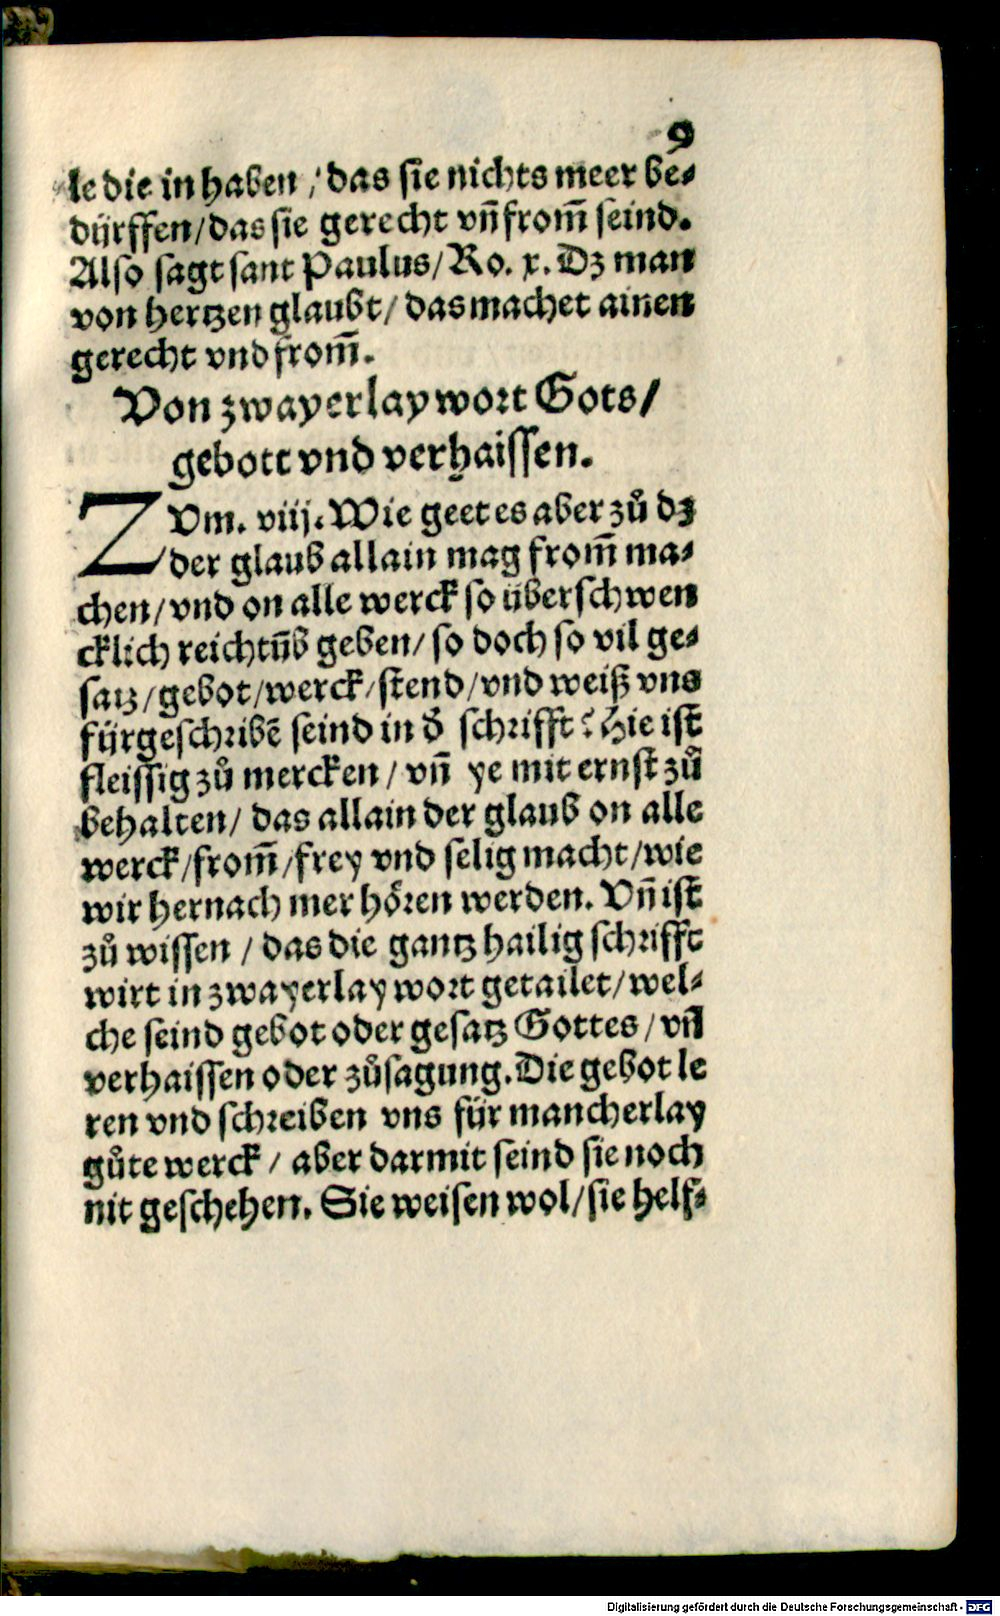 9
le die in haben / das sie nichts meer be⸗
dürffen/das sie gerecht vñ from̃ seind.
Also sagt sant Paulus/Ro. x. Dz man
von hertzen glaubt/ das machet ainen
gerecht vnd from̃.
Von zwayerlay wort Gots/
gebott vnd verhaissen.
ZVm. viij. Wie geet es aber zů dz
der glaub allain mag from̃ ma⸗
chen/vnd on alle werck so überschwen
cklich reichtũb geben/ so doch so vil ge⸗
satz/gebot/werck/stend/vnd weiß vns
fürgeschribẽ seind in d̕ schrifft? Hie ist
fleissig zů mercken/ vñ ye mit ernst zů
behalten/ das allain der glaub on alle
werck/from̃/frey vnd selig macht/wie
wir hernach mer hören werden. Vñ ist
zů wissen / das die gantz hailig schrifft
wirt in zwayerlay wort getailet/wel⸗
che seind gebot oder gesatz Gottes/ vñ
verhaissen oder zůsagung. Die gebot le
ren vnd schreiben vns für mancherlay
gůte werck / aber darmit seind sie noch
nit geschehen. Sie weisen wol/sie helf⸗
Digitalisierung gefördert durch die Deutsche Forschungsgemeinschaft - DFG